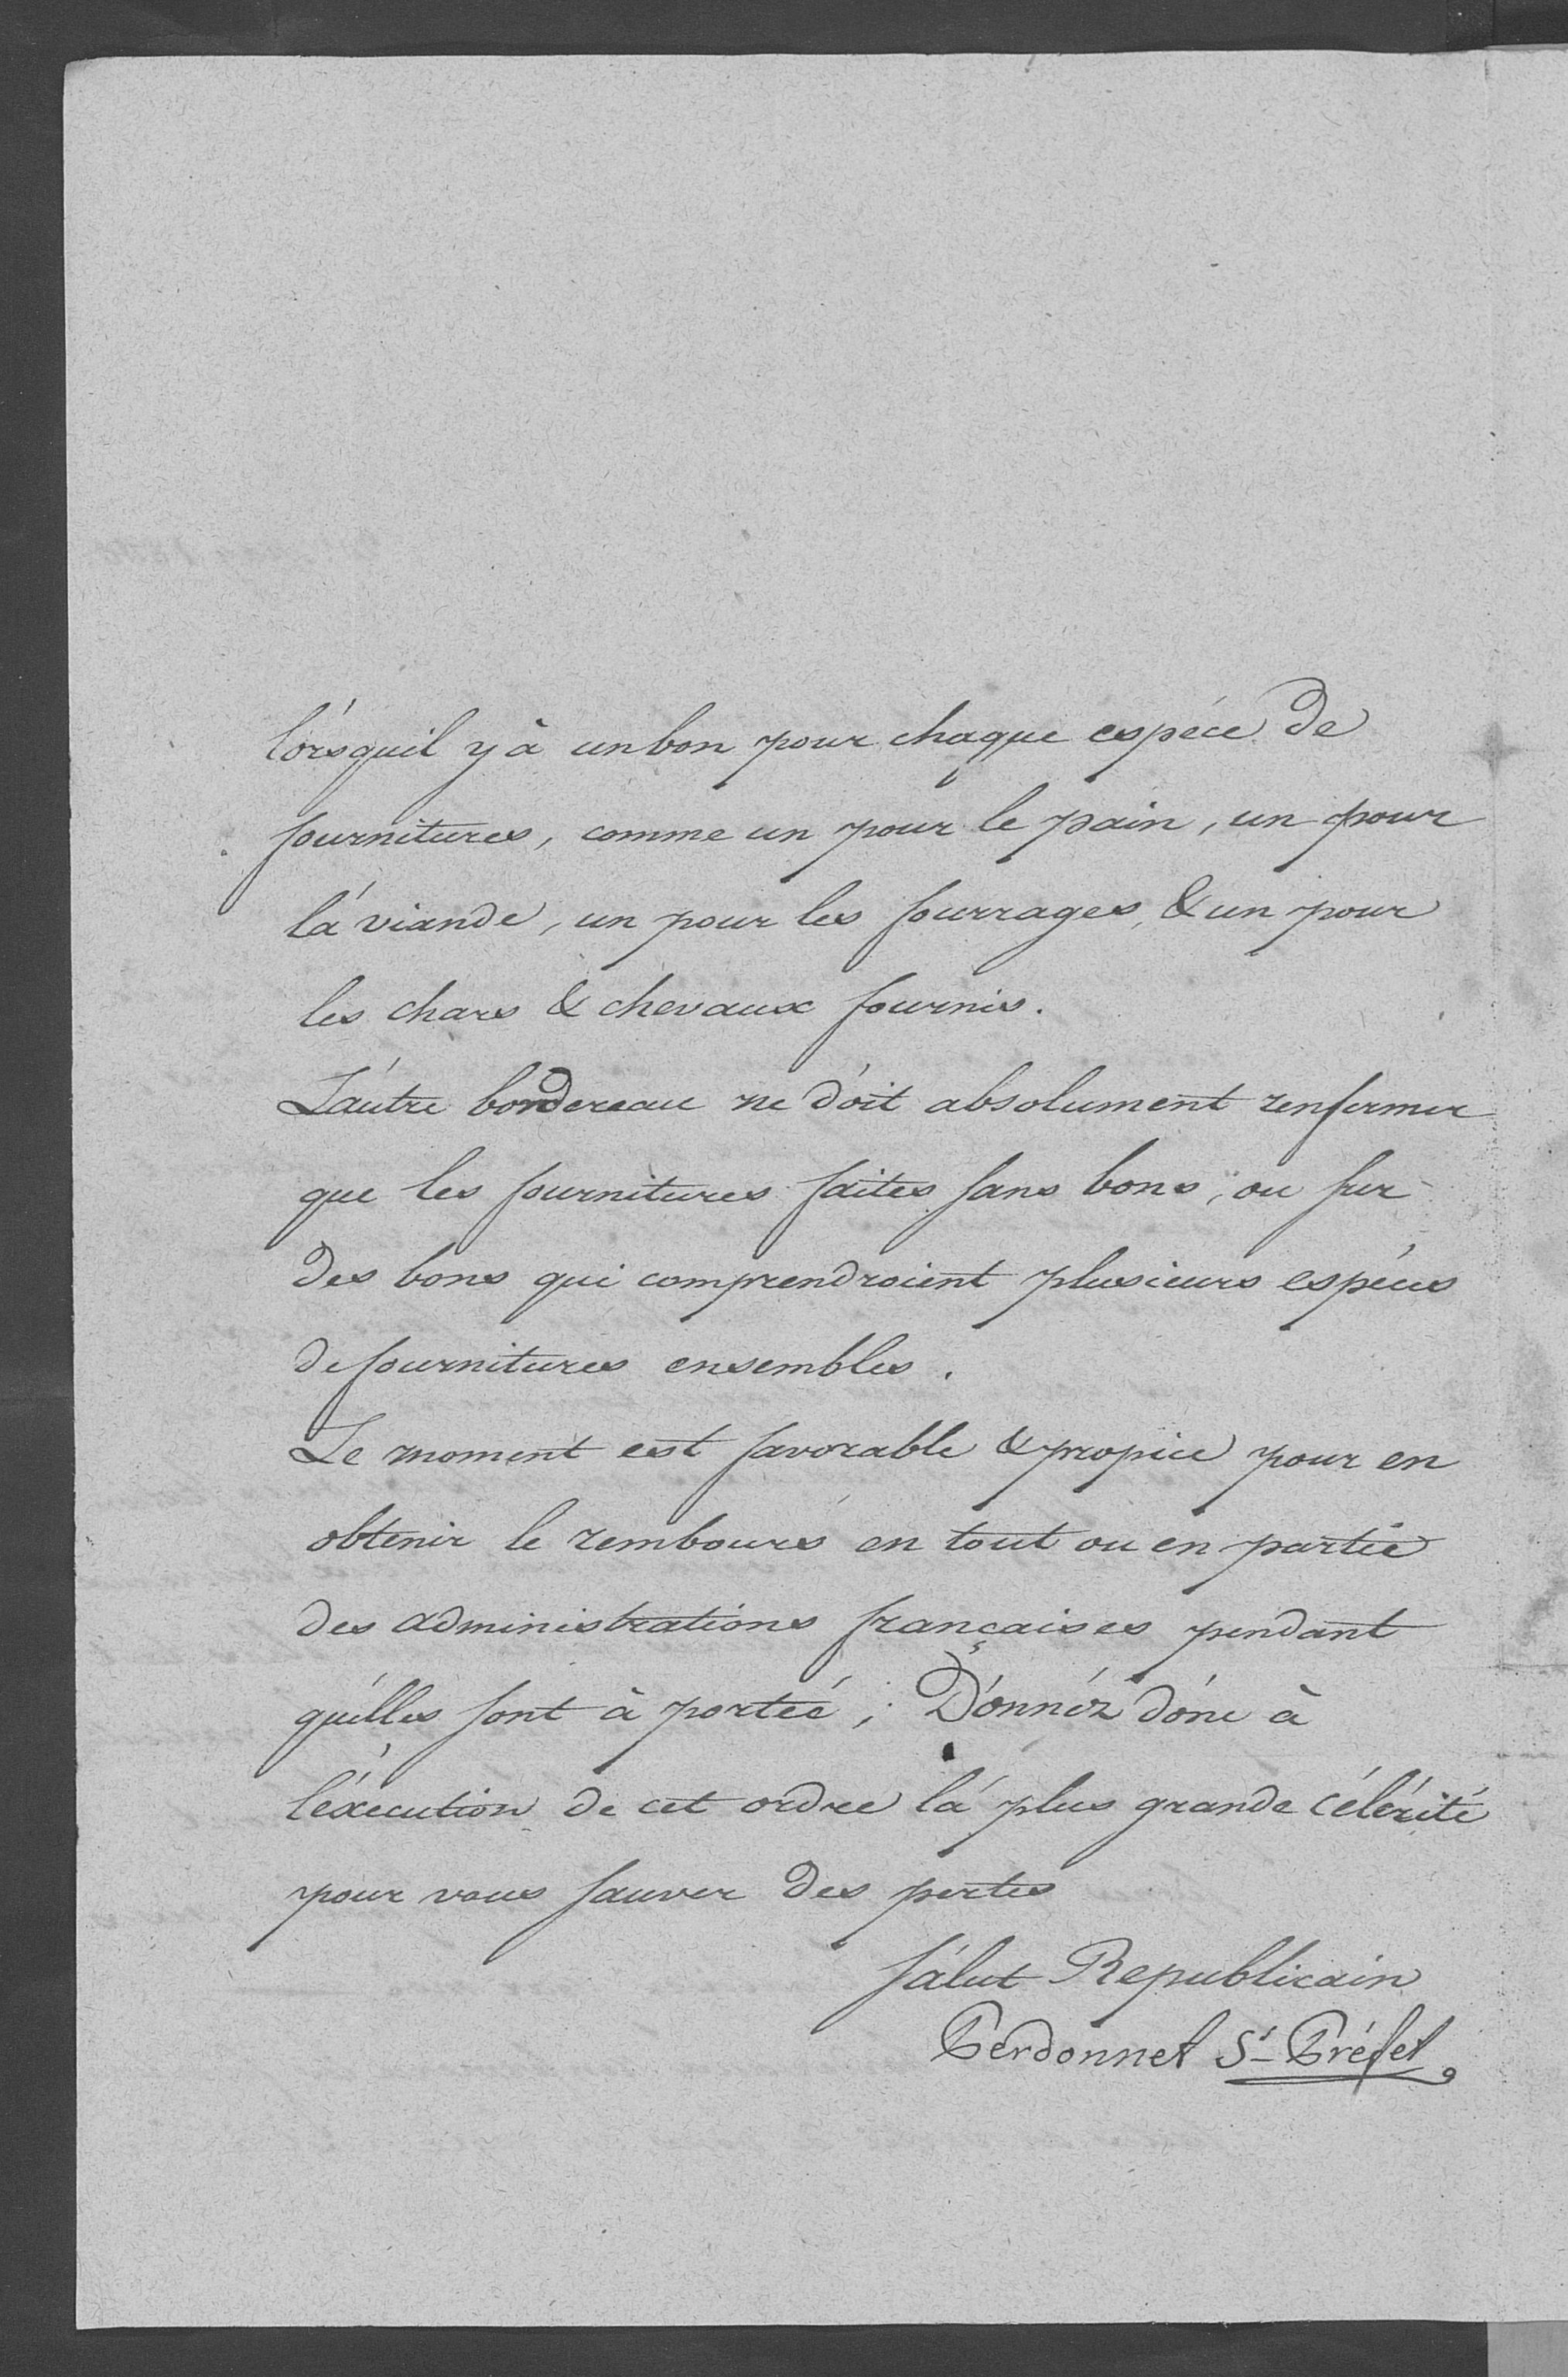 lórsquil y à un bon pour chaque espéce de
fournitures, comme un pour le pain, un pour
lá viande, un pour les fourrages, & un pour
les chars & chevaux fournis.
L'áutre bordereau ne dóit absolument renfermer
que les fournitures faites sans bons, ou sur
des bons qui comprendroient plusieurs espéces
de fournitures ensembles.
Le moment est favorable & propice pour en
obtenir le rembours en tout ou en partie
des administrations françaises pendant
qu'elles sont à porteé; Dónnéz dónc à
l'éxecution de cet ordre lá plus grande célérité
pour vous sauver des pertes
Sálut Republicain
Perdonnet S.-Préfet